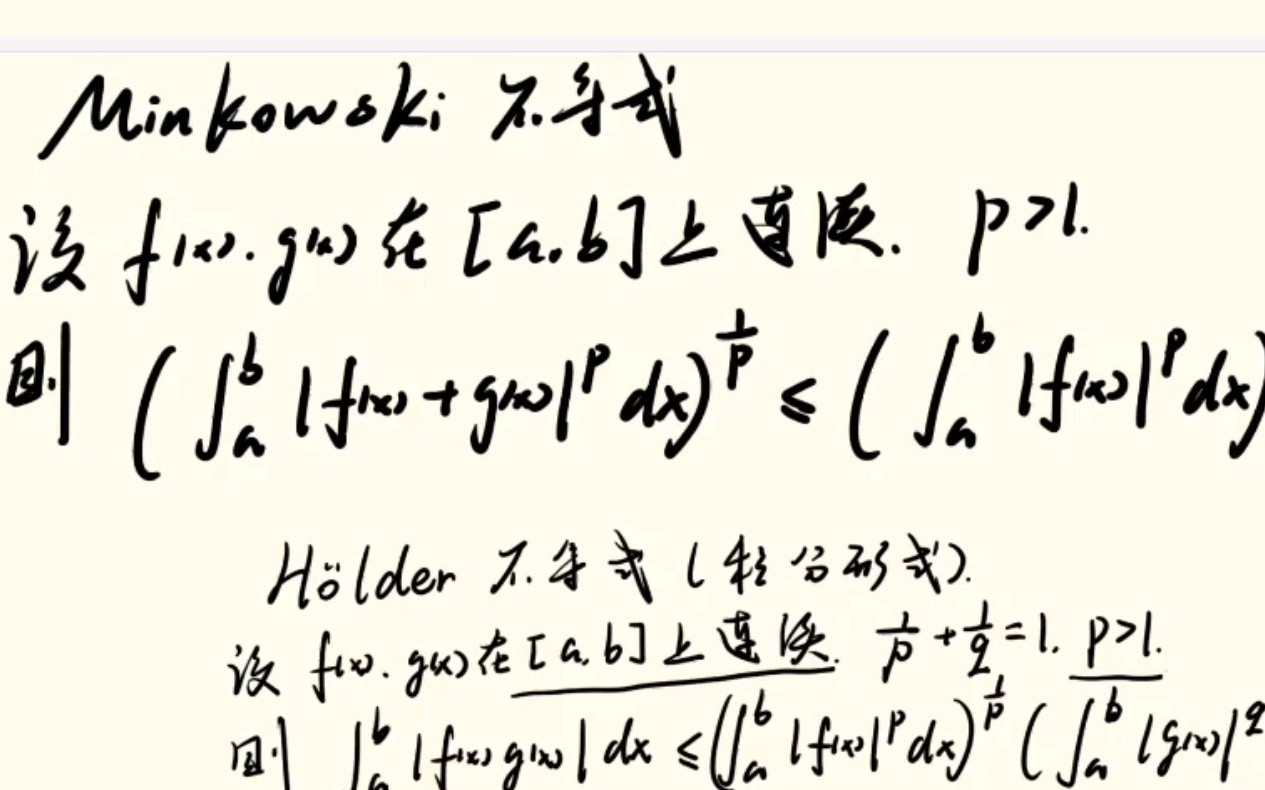 Minkowski 不等式
设 f(x). g(x) 在 [a.b] 上连续. p>1.
则 (∫_a^b |f(x)+g(x)|^p dx)^{1/p} ≤ (∫_a^b |f(x)|^p dx)
Hölder 不等式 (积分形式).
设 f(x). g(x) 在 [a.b] 上连续. 1/p + 1/q = 1. p>1.
则 ∫_a^b |f(x)g(x)| dx ≤ (∫_a^b |f(x)|^p dx)^{1/p} (∫_a^b |g(x)|^q